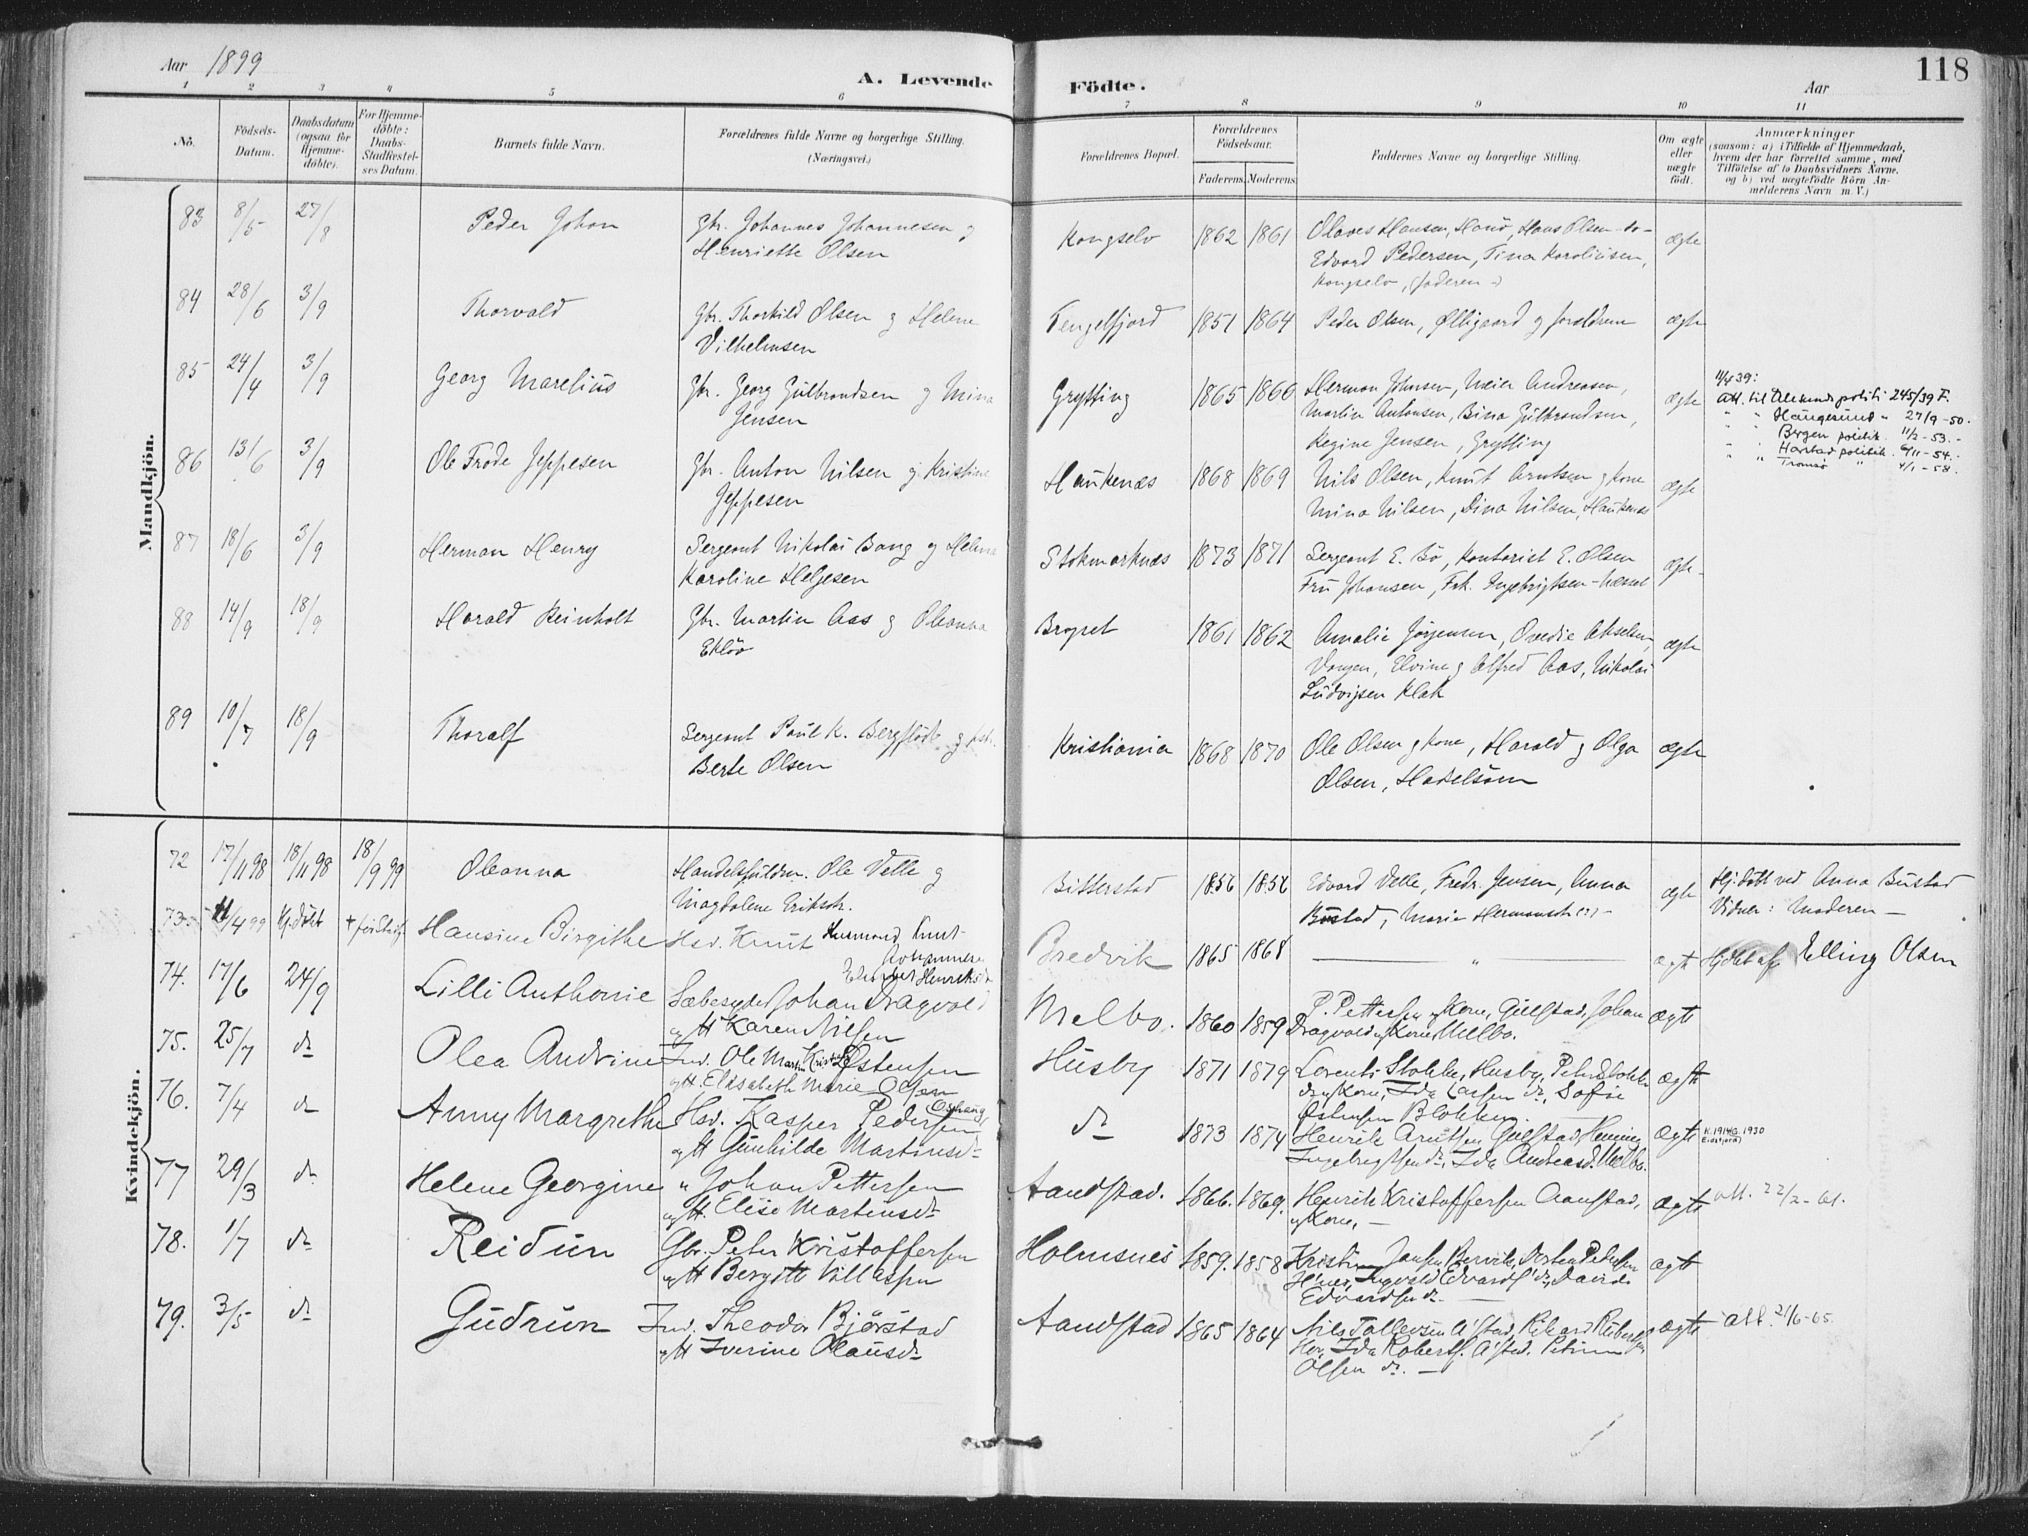 Aar 1899
A. Levende Födte.
118
Aar
1 2 3 4 5 6 7 8 9 10 11
No.
Födsels-Datum.
Daabsdatum (ogsaa for Hjemme-döbte).
For Hjemme-döbte: Daabs-Stadfæstel-ses Datum.
Barnets fulde Navn.
Forældrenes fulde Navne og borgerlige Stilling. (Næringsvei.)
Forældrenes Bopæl.
Forældrenes Födselsaar.
Faderens. Moderens.
Faddernes Navne og borgerlige Stilling.
Om ægte eller uægte födt.
Anmærkninger
(saasom: a) i Tilfælde af Hjemmedaab, hvem der har forrettet samme, med Tilföielse af to Daabsvidners Navne. og b) ved uægtefödte Börn Anmelderens Navn m. V.)
Mandkjön.
83 8/5 27/8 Peder Johan Gbr. Johannes Johannesen og Kongselv 1862 1861 Olaves Hansen, Hanö, Hans Olsen - do - ægte
Henriette Olsen Edvard Pedersen, Tina Karoliusen,
Kongselv, (faderen -)
84 28/6 3/9 Thorvald Gbr. Thorkild Olsen og Helene Tengelfjord 1851 1864 Peder Olsen, og forældrene ægte
Vilhelmsen
85 24/4 3/9 Georg Marelius Gbr. Georg Gulbrandsen og Mina Grytting 1865 1866 Herman Johnsen, Meier Andreasen, ægte 11/4 39:
Jensen Martin Antonsen, Bina Gulbrandsen, Att. til Alesund politi 245/39 F.
Regine Jensen, Grytting " " Haugesund " 27/9-50.
" " Bergen politik. 11/2-53.-
" " Harstad politik. 6/11-54.-
" " Tromsø " 4/1-58.
86 13/6 3/9 Ole Frode Jeppesen Gbr. Anton Nilsen og Kristine Haukenæs 1868 1869 Nils Olsen, Knut Arntsen og kone ægte
Jeppesen Mina Nilsen, Dina Nilsen, Haukenæs
87 18/6 3/9 Herman Henry Sergeant Nikolai Bang og Helma Stokmarknæs 1873 1871 Sergeant E. Bö, Kontorist E. Olsen ægte -
Karoline Helgesen Fru Johansen, Frk. Ingebrigtsen -
88 14/9 18/9 Harald Reinholt Gbr. Martin Aas og Oleanna 1861 1862 Amalie Jørgensen, Ovedie Akselsen, ægte
Eklöv Vangen, Elvine og Alfred Aas, Nikolai
Ludvigsen Klak
89 10/7 18/9 Thoralf Sergeant Paul K. og Kristiania 1868 1870 Ole Olsen og kone, Harald og Olga ægte
Berte Olsen Olsen, Hadelsöen
Kvindekjön.
72 17/11 98 18/11 98 18/9 99 Oleanna Ole Velle og Bitterstad 1856 1856 Edvard Velle, Fredr. Jensen, Anna ægte Hj.döbt ved Anna Bustad
Magdalene Eriksdr. Bustad, Marie Hermansdr (:) - Vidner: Moderen -
73 4/99 Hj.döbt Hansine Birgithe Hsv. Knut Husmand Knut Bredvik 1865 1868 " ægte Hjdöbt af Elling Olsen
Johannesen
Henriksdr
74. 17/6 24/9 Lilli Anthonie Sæbesyder Johan Dragvold Melbo. 1860 1859 P. Pettersen og Kone, Gulstad, Johan ægte
og H Karen Nilsen Dragvold og Kone Melbo.
75. 25/7 do Olea Andrine Ind. Ole Martin Kristian Østensen Husby 1871 1879 Lorents Stokke, Husby, Peter Stokke ægte
og H. Elisabeth Marie Olsen do og Kone, Ida Larsen do, Sofie
Østensen Blokken
76. 7/4 do Anny Margrethe Hsv. Kasper Pedersen do 1873 1874 Henrik Arntsen Gulstad, Henning ægte K. 1914 G. 1930
og H Gunhilde Martinusd. Ingebrigtsen do, Ida Andreasd. Melbo. Eidsfjord
77 29/3 do Helene Georgine " Johan Pettersen Aandstad. 1866. 1869. Henrik Kristoffersen Aanstad, ægte att. 22/2-61.
og H. Elise Martinsd. og Kone, -
78. 1/7 do Reidun Gbr. Peter Kristoffersen Holmsnes 1859. 1858 Kristine Jansen Bervik, Dorthea Petersen ægte
og H Bergitte Villassen Ingvald Edvards. do, David
Edvardsen do
79. 3/5 do Gudrun Ind. Theodor Bjørstad Aandstad 1865 1864 Nils Tollevsen A'stad, Rikard Robertsen ægte att. 21/6-65.
og H Iverine Olausd. Ida Roberts. A'stad. Petrine
Olsen do. -